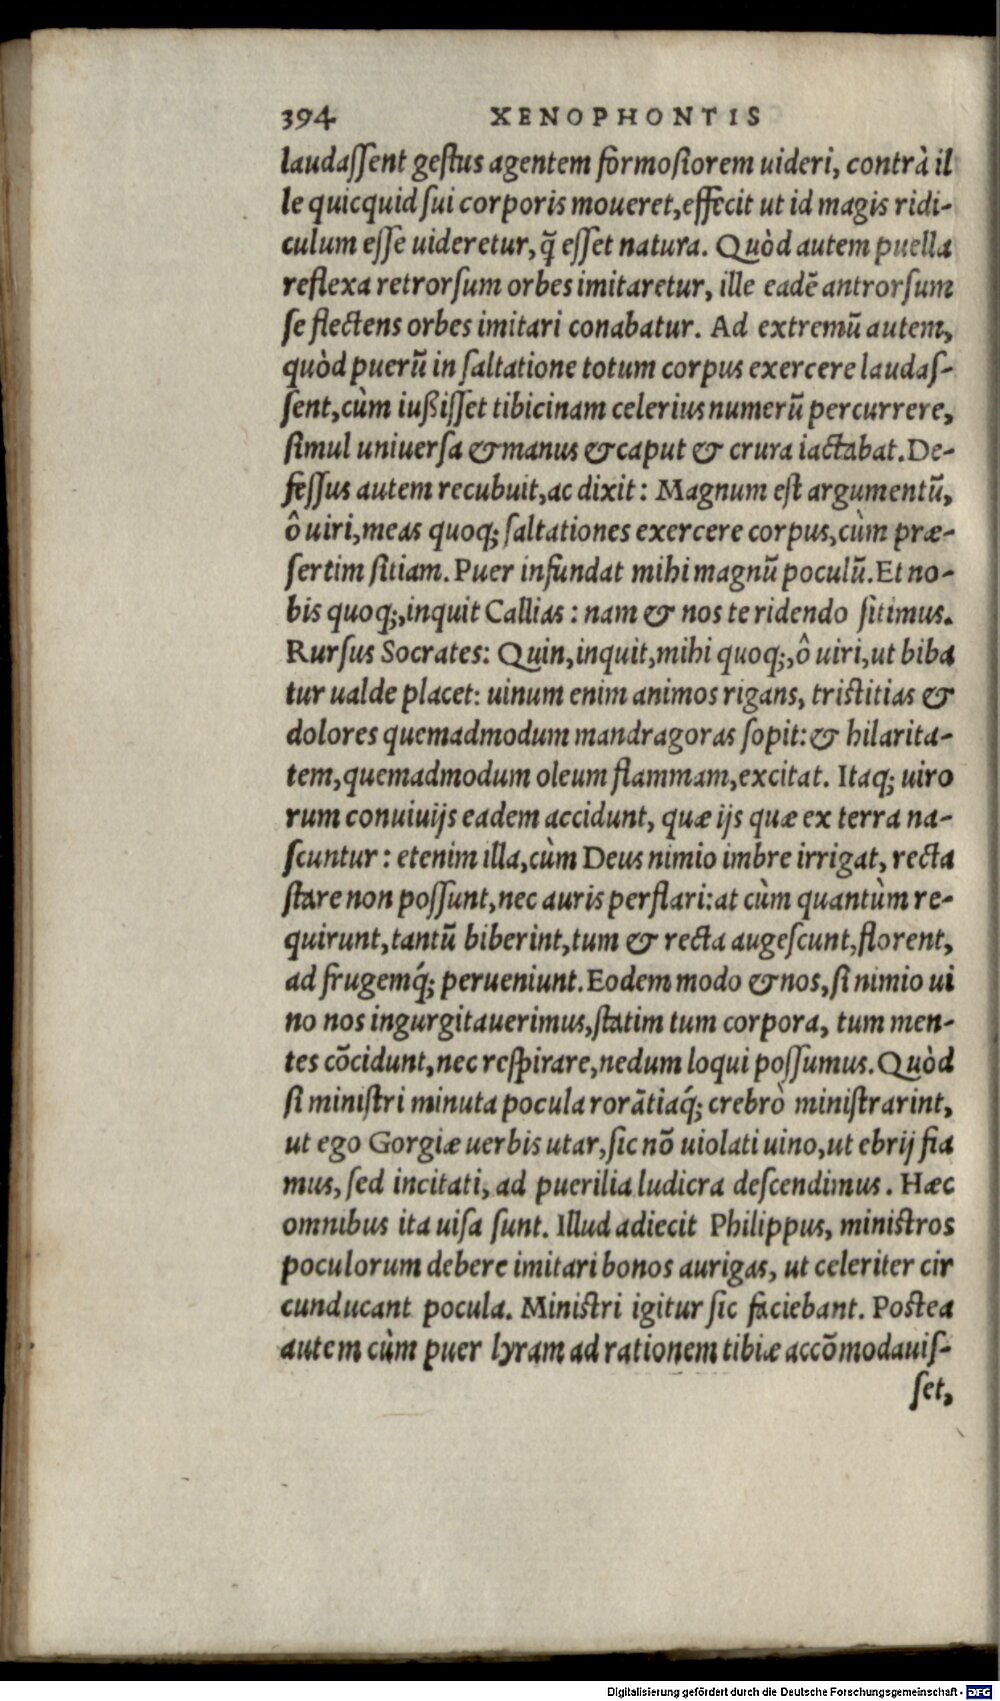 394 XENOPHONTIS
laudaſſent geſtus agentem formoſiorem uideri, contrà il
le quicquid ſui corporis moueret, effecit ut id magis ridi-
culum eſſe uideretur, q̃ eſſet natura. Quòd autem puella
reflexa retrorſum orbes imitaretur, ille eadē antrorſum
ſe flectens orbes imitari conabatur. Ad extremū autem,
quòd puerū in ſaltatione totum corpus exercere laudaſ-
ſent, cùm iußiſſet tibicinam celerius numerū percurrere,
ſimul uniuerſa & manus & caput & crura iactabat. De-
feſſus autem recubuit, ac dixit: Magnum eſt argumentū,
ô uiri, meas quoq; ſaltationes exercere corpus, cùm præ-
ſertim ſitiam. Puer infundat mihi magnū poculū. Et no-
bis quoq;, inquit Callias: nam & nos te ridendo ſitimus.
Rurſus Socrates: Quin, inquit, mihi quoq;, ô uiri, ut biba
tur ualde placet: uinum enim animos rigans, triſtitias &
dolores quemadmodum mandragoras ſopit: & hilarita-
tem, quemadmodum oleum flammam, excitat. Itaq; uiro
rum conuiuijs eadem accidunt, quæ ijs quæ ex terra na-
ſcuntur: etenim illa, cùm Deus nimio imbre irrigat, recta
ſtare non poſſunt, nec auris perflari: at cùm quantùm re-
quirunt, tantū biberint, tum & recta augeſcunt, florent,
ad frugemq́; perueniunt. Eodem modo & nos, ſi nimio ui
no nos ingurgitauerimus, ſtatim tum corpora, tum men-
tes cōcidunt, nec reſpirare, nedum loqui poſſumus. Quòd
ſi miniſtri minuta pocula rorātiaq́; crebrò miniſtrarint,
ut ego Gorgiæ uerbis utar, ſic nō uiolati uino, ut ebrij fia
mus, ſed incitati, ad puerilia ludicra deſcendimus. Hæc
omnibus ita uiſa ſunt. Illud adiecit Philippus, miniſtros
poculorum debere imitari bonos aurigas, ut celeriter cir
cunducant pocula. Miniſtri igitur ſic faciebant. Poſtea
autem cùm puer lyram ad rationem tibiæ accōmodauiſ-
ſet,
Digitalisierung gefördert durch die Deutsche Forschungsgemeinschaft - DFG